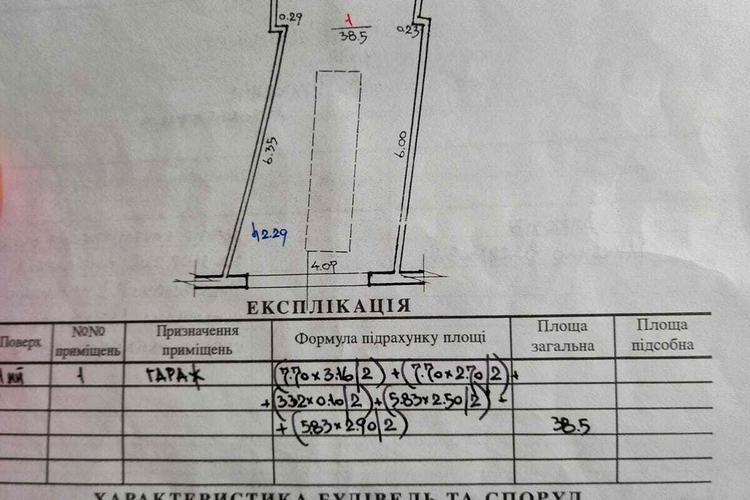 0.29
1
38.5
0.23
6.35
6.00
h2.29
4.09
ЕКСПЛІКАЦІЯ
Поверх
№№ приміщень
Призначення приміщень
Формула підрахунку площі
Площа загальна
Площа підсобна
1ий 1 ГАРАЖ (7.70×3.16/2)+(7.70×2.70/2)+
+(3.32×0.10/2)+(5.83×2.50/2)
+(5.83×2.90/2) 38.5
ХАРАКТЕРИСТИКА БУДІВЕЛЬ ТА СПОРУД